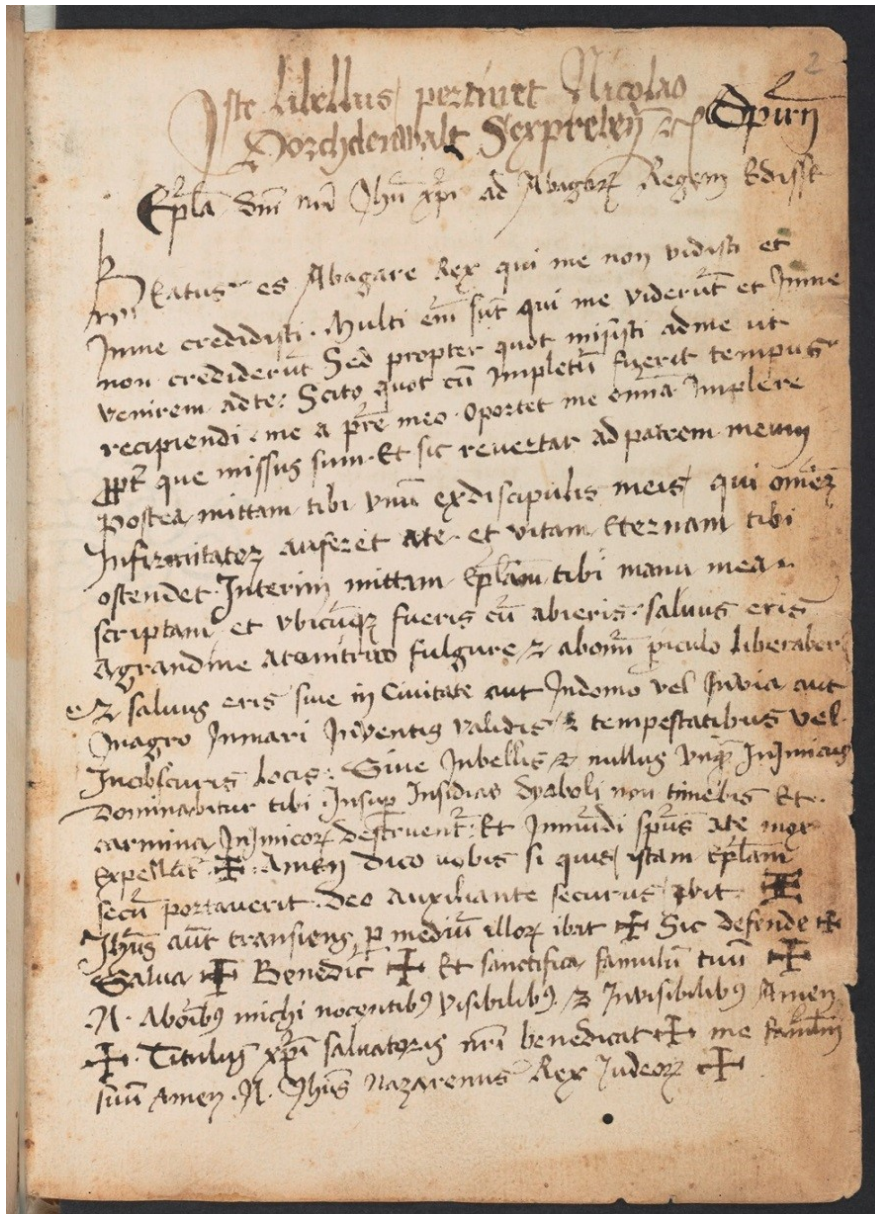 2
Iste libellus pertinet Nicolao
Porchderwalt Sexpreten
Ep̃la dñi nr̃i Jhũ xp̃i ad Abagarꝫ Regem Edisse
Beatus es Abagare Rex qui me non vidisti et
Inme credidisti. Multi em̃ sũt qui me viderũt et Inme
non crediderũt Sed propter quot misisti adme ut
venirem adte: Scito quot cũ Impletũ fuerit tempus
recipiendi me a pr̃e meo. Oportet me om̃ia Implere
ꝓpt̃ que missus sum. Et sic revertar ad patrem meum
postea mittam tibi vnũ exdiscipulis meis qui om̃eꝫ
Infirmitateꝫ auferet ate. et vitam Eternam tibi
ostendet. Interim mittam Ep̃lam tibi manu mea
scriptam et vbicũqꝫ fueris cũ abieris. salvus eris
Agrandine Atonitruo fulgure ⁊ abom̃i ꝑiculo liberaber
⁊ salvus eris sive in Civitate aut Indomo vel Invia aut
Inagro Inmari Inventis validis ⁊ tempestatibus vel
Inobscuris locis: Sive Inbellis ⁊ nullus vnq̃ Inimicus
Dominabitur tibi. Insuꝑ Insidias dyaboli non timebis Et
carmina Inimicoꝝ destruent̃: Et Inmũdi spũs ate mox
Expellãt ✠: Amen dico vobis si quis istam Ep̃lam
secũ portaverit. Deo Auxiliante securus ibit ✠
Jhũs aũt transiens ꝑ mediũ illoꝝ ibat ✠ Sic defende ✠
Salva ✠ Benedic ✠ Et sanctifica famulũ tuũ ✠
.N. Abom̃ibꝰ michi nocentibꝰ visibilibꝰ ⁊ Invisibilibꝰ Amen
✠. Titulus xp̃i salvatoris nr̃i benedicat ✠ me famulũ
suũ Amen .N. Jhũs Nazarenus Rex Judeoꝝ ✠